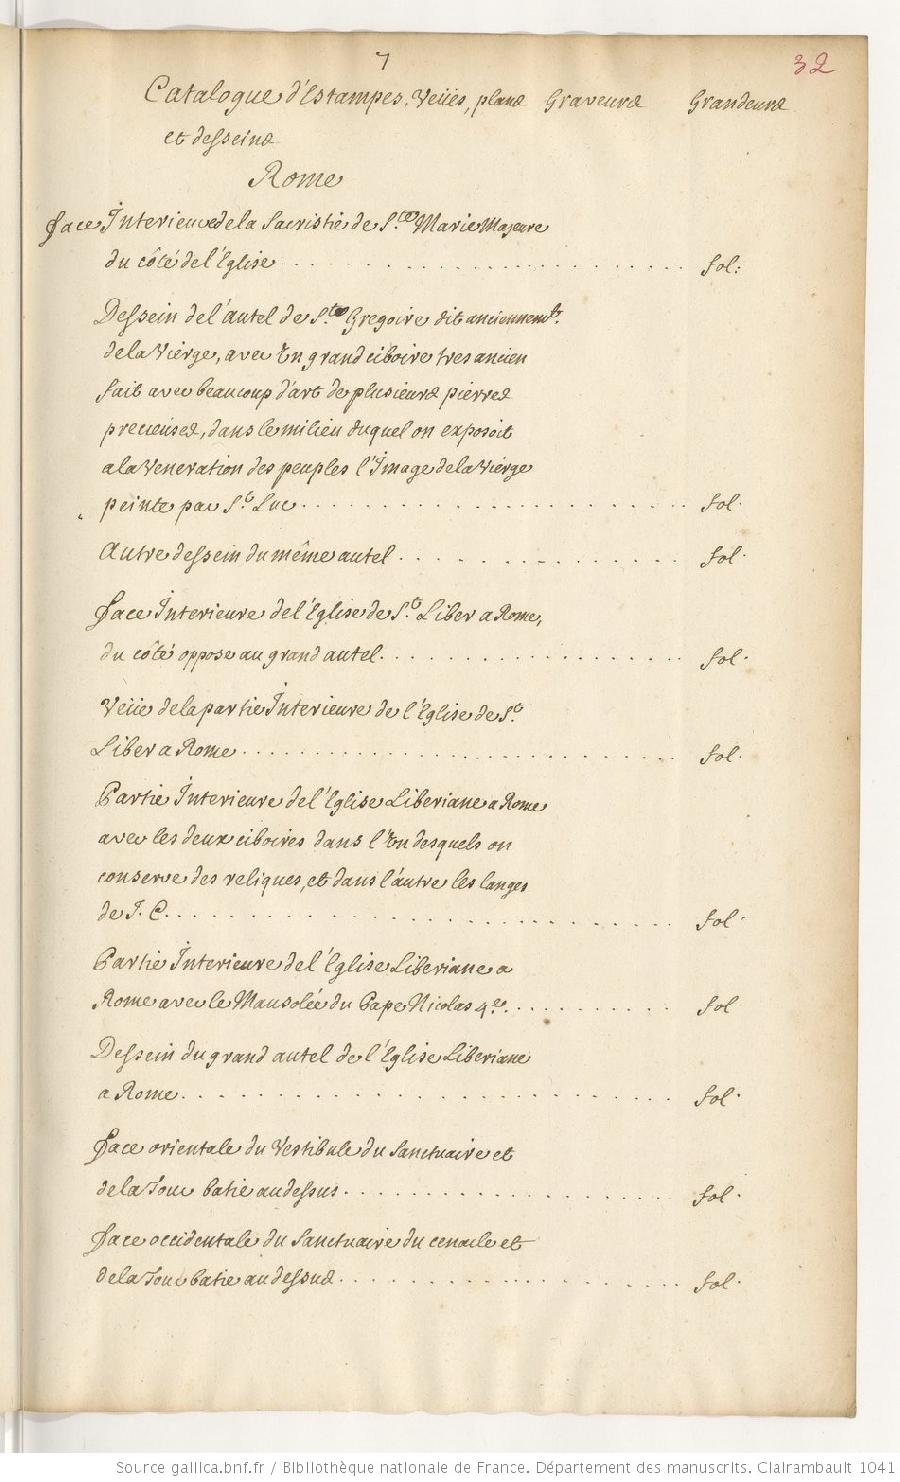 7
32
Catalogue d'Estampes. Veües, plans Graveurs Grandeurs
et desseins
Rome
face Interieure de la Sacristie de S.te Marie Majeure
du côté de l'Eglise . . . . . . . . . . fol:
Dessein de l'autel de S.te Gregoire dit anciennem.t
de la Vierge, avec Un grand ciboire tres ancien
fait avec beaucoup d'art de plusieurs pierres
precieuses, dans le milieu duquel on exposoit
a la Veneration des peuples l'Image de la Vierge
peinte par S.t Luc . . . . . . . . . . fol.
Autre dessein du même autel . . . . . . . . . . fol.
face Interieure de l'Eglise de S.t Liber a Rome,
du côté oppose au grand autel . . . . . . . . . . fol.
Veüe de la partie Interieure de l'Eglise de S.t
Liber a Rome . . . . . . . . . . fol.
Partie Interieure de l'Eglise Liberiane a Rome
avec les deux ciboires dans l'Un desquels on
conserve des reliques, et dans l'autre les langes
de J. C. . . . . . . . . . . fol.
Partie Interieure de l'Eglise Liberiane a
Rome avec le Mausolée du Pape Nicolas 4.e . . . . . . . . . . fol
Dessein du grand autel de l'Eglise Liberiane
a Rome . . . . . . . . . . fol.
face orientale du Vestibule du Sanctuaire et
de la Tour batie au dessus . . . . . . . . . . fol.
face occidentale du Sanctuaire du cenacle et
de la Tour batie au dessus . . . . . . . . . . fol.
Source gallica.bnf.fr / Bibliothèque nationale de France. Département des manuscrits. Clairambault 1041